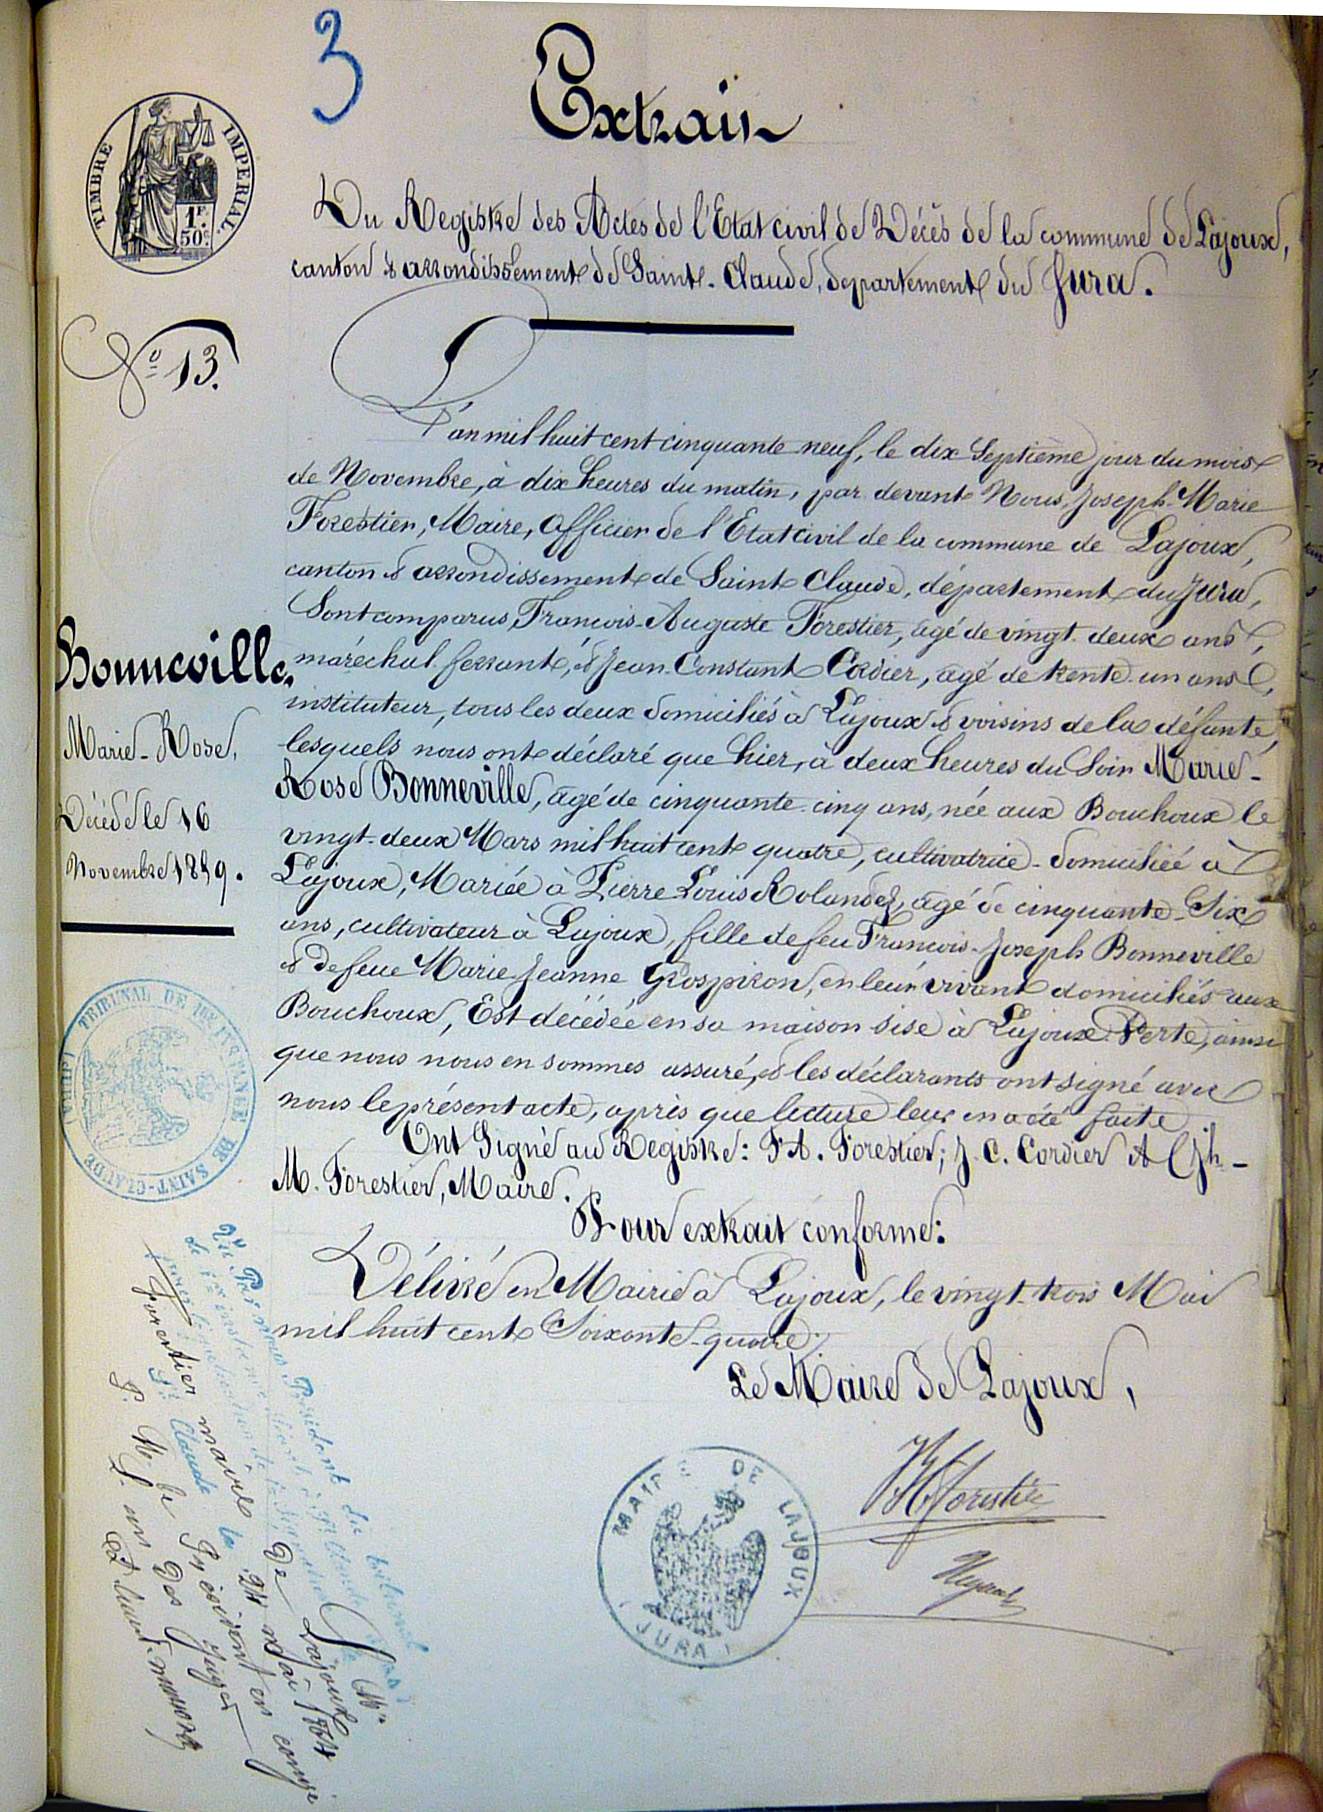 3
Extrait
TIMBRE IMPERIAL.
1F. 50c.
Du Registre des Actes de l'Etat civil de Décès de la commune de Lajoux,
canton & arrondissement de Saint-Claude, département du Jura.
No 13.
L'an mil huit cent cinquante neuf, le dix Septième jour du mois
de Novembre, à dix heures du matin, par devant Nous, Joseph-Marie
Forestier, Maire, Officier de l'Etat civil de la commune de Lajoux,
canton & arrondissement de Saint Claude, département du Jura,
Sont comparus, Francois-Auguste Forestier, âgé de vingt deux ans,
maréchal-ferrant, & Jean-Constant Cordier, âgé de trente un ans,
instituteur, tous les deux domiciliés à Lajoux & voisins de la défunte,
lesquels nous ont déclaré que hier, à deux heures du Soir Marie-
Rose Bonneville, âgé de cinquante-cinq ans, née aux Bouchoux le
vingt-deux Mars mil huit cent quatre, cultivatrice-domiciliée à
Lajoux, Mariée à Pierre Louis Rolandez, âgé de cinquante-Six
ans, cultivateur à Lajoux, fille de feu Francois-Joseph Bonneville
& de feue Marie-Jeanne Grospiron, en leur vivant domiciliés aux
Bouchoux, Est décédée en sa maison sise à Lajoux Perte, ainsi
que nous nous en sommes assuré, & les déclarants ont signé avec
nous le présent acte, après que lecture leur en a été faite.
Ont Signé au Registre: F A. Forestier; J. C. Cordier &
M. Forestier, Maire.
Pour extrait conforme:
Délivré en Mairie à Lajoux, le vingt-trois Mai
mil huit cent Soixante-quatre.
Le Maire de Lajoux,
JM forestier
Bonneville
Marie-Rose,
Décédé le 16
Novembre 1859.
TRIBUNAL DE 1ERE INSTANCE DE SAINT-CLAUDE (JURA)
MAIRIE DE LAJOUX (JURA)
Vu Par nous Président du tribunal
de 1ère instance séant à St Claude
pour légalisation de la signature de Mr
Forestier maire de Lajoux
St Claude le 24 mai 1864
Pr Mr le Président en congé
L'un des Juges